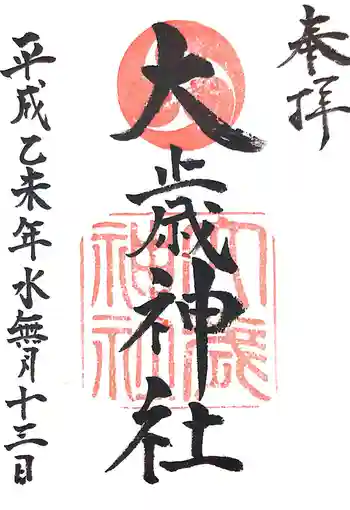 奉拝
大歳神社
大歳神社
平成乙未年水無月十三日